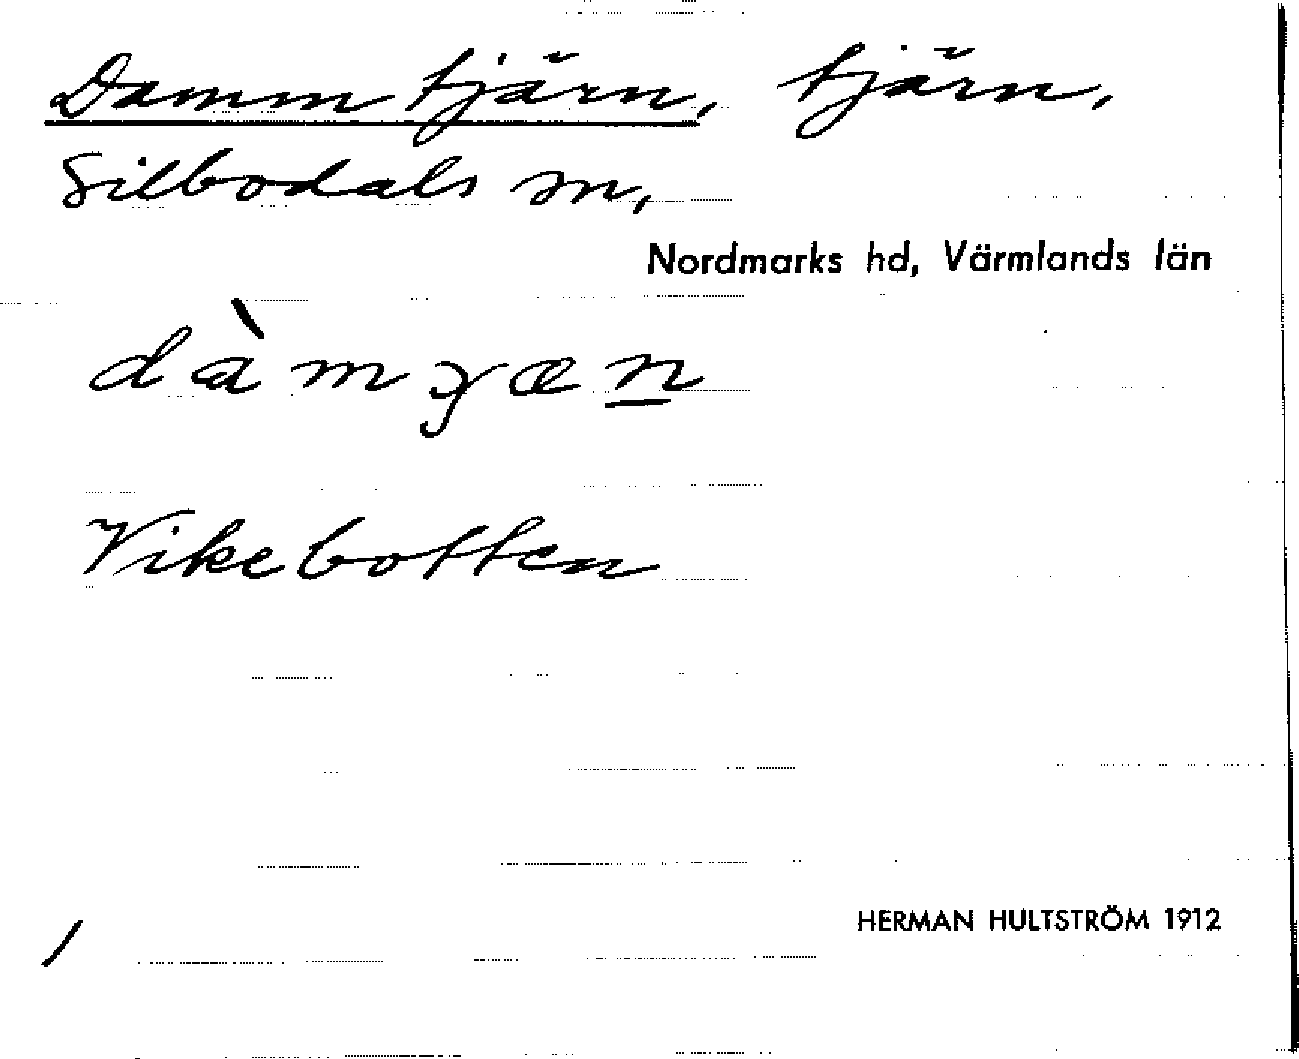 Dammtjärn, tjärn,
Silbodals sn,
Nordmarks hd, Värmlands län
Vikebotten
HERMAN HULTSTRÖM 1912
/